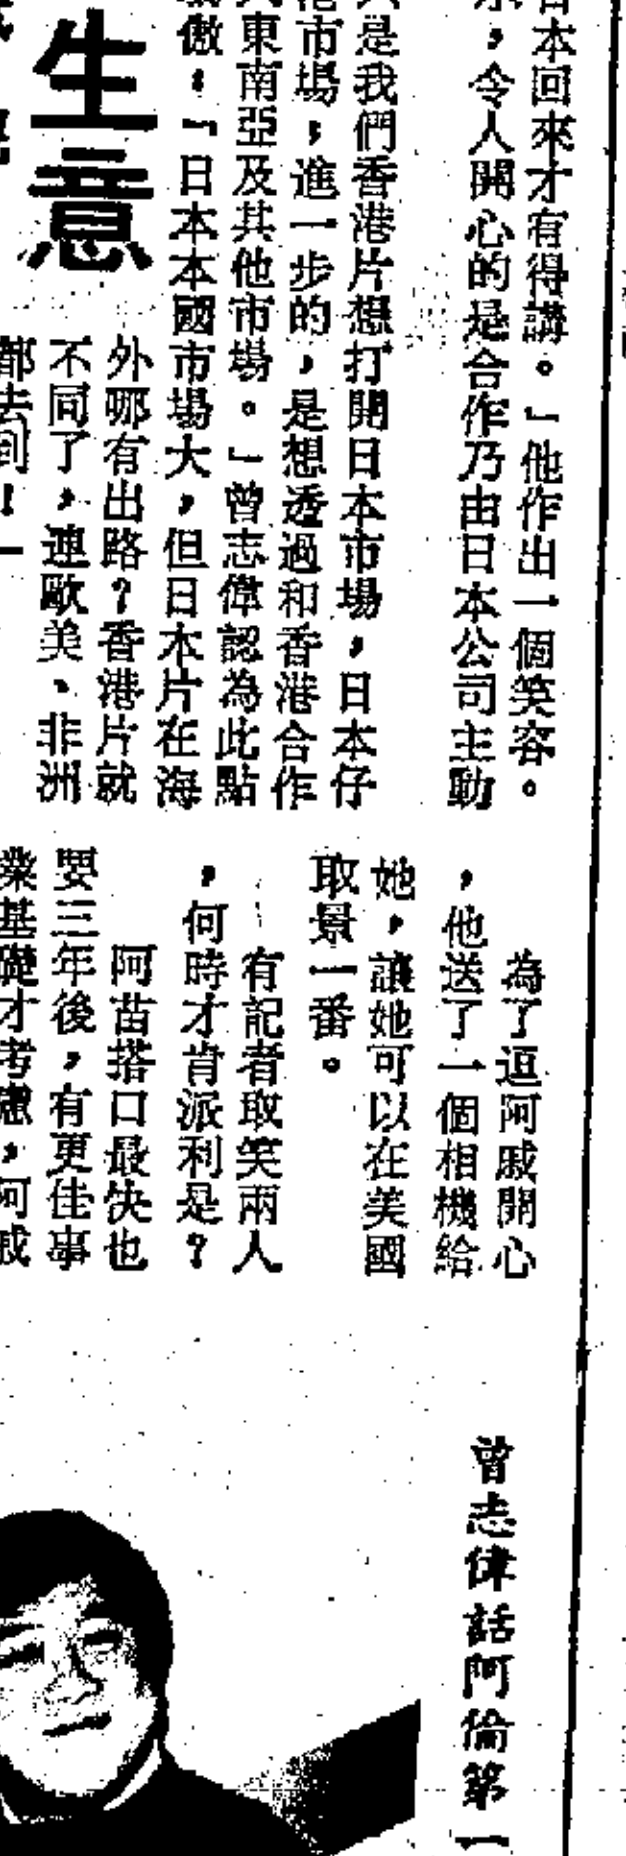 本回來才有得講。」他作出一個笑容。
，令人開心的是合作乃由日本公司主動
是我們香港片想打開日本市場，日本仔
市場；進一步的，是想透過和香港合作
東南亞及其他市場。」曾志偉認為此點
傲：「日本本國市場大，但日本片在海
外哪有出路？香港片就
不同了，連歐美、非洲
都去到！
生意
為了逗阿戚開心
，他送了一個相機給
她，讓她可以在美國
取景一番。
有記者取笑兩人
，何時才肯派利是？
阿苗搭口最快也
要三年後，有更佳事
業基礎才考慮，阿戚
曾志偉話阿倫第一